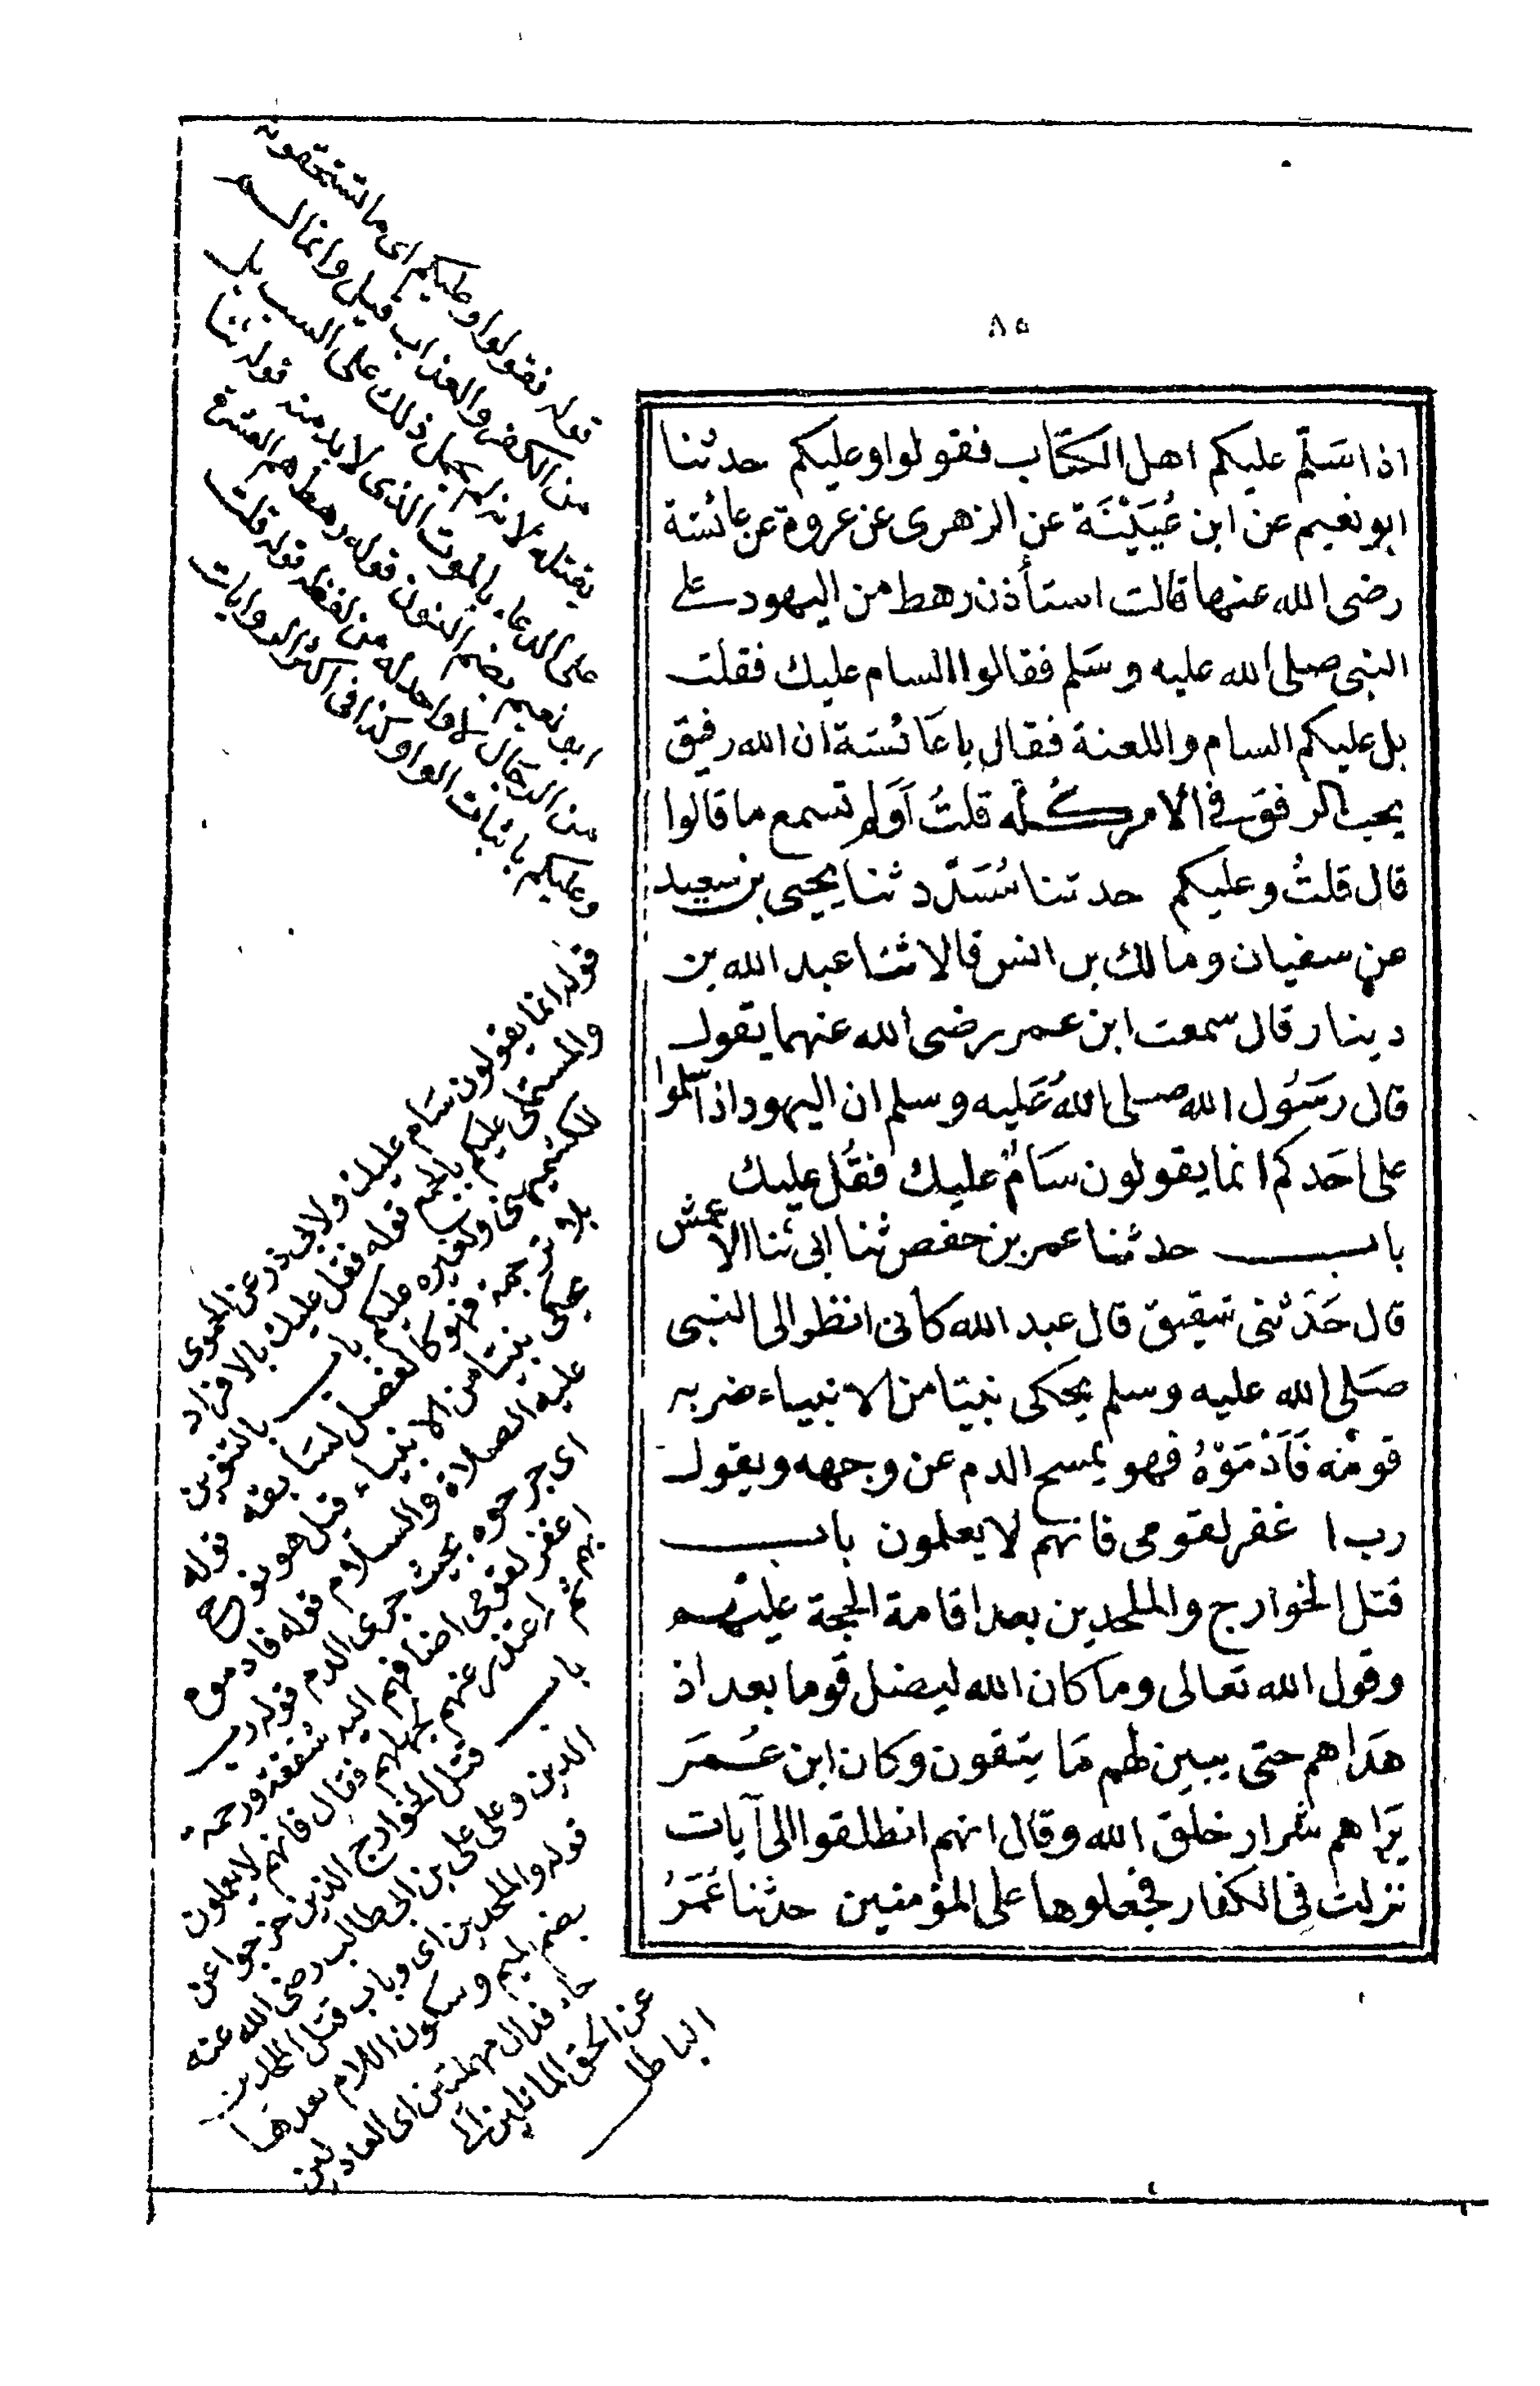 ٨٥
اذا سَلّم عليكم اهل الكتاب فقولوا وعليكم حدثنا
ابو نعيم عن ابن عُيَيْنَة عن الزهرى عن عروة عن عائشة
رضى الله عنها قالت استأذن رهط من اليهود على
النبى صلى الله عليه وسَلم فقالوا السام عليك فقلت
بل عليكم السام واللعنة فقال يا عَائشة ان الله رفيق
يحب الرفق فى الامر كُلّه قلتُ اَوَلم تسمع ما قالوا
قال قلتُ وعليكم حدثنا مُسَدّد ثنا يحيى بن سعيد
عن سفيان ومالك بن انس قالا ثنا عبد الله بن
دينار قال سمعت ابن عمر رضى الله عنهما يقول
قال رسُول الله صلى اللهُ عَليه وسلم ان اليهود اذا سلموا
على احَدكم انما يقولون سَامٌ عليك فقُل عليك
باب حدثنا عمر بن حفص ثنا ابى ثنا الاعمش
قال حَدّثنى شقيق قال عبد الله كأنى انظر الى النبى
صَلى الله عليه وسلم يحكى نبيّا من الانبياء ضربه
قومُه فَاَدْمَوْهُ فهو يمسح الدم عن وجهه ويقول
رب اغفر لقومى فانهم لا يعلمون باب
قتل الخوارج والملحدين بعد اقامة الحجة عليْهم
وقول الله تعالى وما كان الله ليضل قوما بعد اذ
هَداهم حتى يبين لهم مَا يتقون وكان ابن عُمَر
يَراهم شرار خلق الله وقال انهم انطلقوا الى آيات
نزلت فى الكفار فجعلوها على المؤمنين حدثنا عُمَرُ
قوله فقولوا وعليكم اى ما تستحقونه
من الكفر والعذاب قيل وانما لم
يقتله لانه لم يحمل ذلك على السب بل
على الدعاء بالموت الذى لا بد منه قوله ثنا
ابو نعيم بضم النون قوله رهط هم العشرة
من الرجال لا واحد له من لفظه قوله قلت
وعليكم باثبات الواو كذا فى اكثر الروايات
قوله انما يقولون سَام عليك ولابى ذر عن الحموى
والمستملى عليكم بالجمع قوله فقل عليك بالافراد
للكشميهنى ولغيره عليكم باب بالتنوين
بلا ترجمة فهو كالفصل لسَابقه قوله
يحكى نبيّا من الانبياء قيل هو نوح
عليه الصلاة والسلام قوله فادموه
اى جرحوه بحيث جرى الدم قوله رب
اغفر لقومى اضافهم اليه شفقة ورحمة
بهم ثم اعتذر عنهم بجهلهم فقال فانهم لا يعلمون
باب قتل الخوارج الذين خرجوا عن
الدين وعلى على بن ابى طالب رضى الله عنه
قوله والملحدين اى وباب قتل الملحدين
بضم الميم وسكون اللام بعدهَا
حاء فدال مهملتين اى العادلين
عن الحق المائلين الى
الباطل